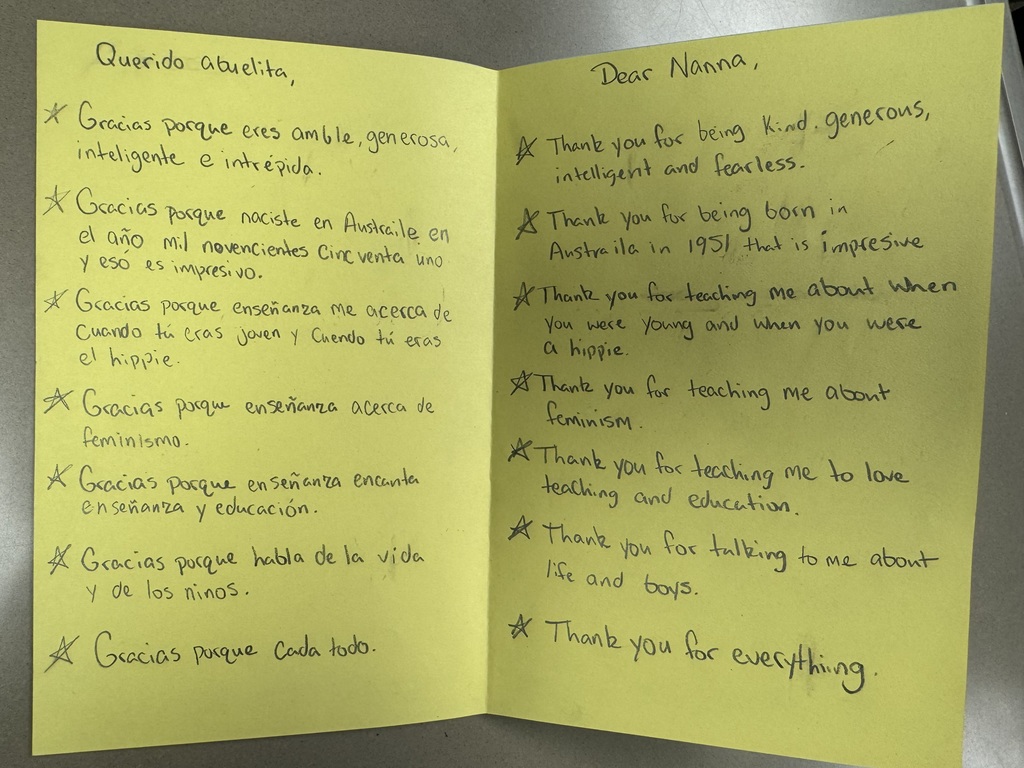 Querido abuelita,
Gracias porque eres amble, generosa,
inteligente e intrépida.
Gracias porque naciste en Austraile en
el año mil novencientes cincventa uno
y esó es impresivo.
Gracias porque enseñanza me acerca de
cuando tú eras joven y cuendo tú eras
el hippie.
Gracias porque enseñanza acerca de
feminismo.
Gracias porque enseñanza encanta
enseñanza y educación.
Gracias porque habla de la vida
y de los ninos.
Gracias porque cada todo.
Dear Nanna,
Thank you for being kind, generous,
intelligent and fearless.
Thank you for being born in
Austraila in 1951 that is impresive
Thank you for teaching me about when
you were young and when you were
a hippie.
Thank you for teaching me about
feminism.
Thank you for teaching me to love
teaching and education.
Thank you for talking to me about
life and boys.
Thank you for everything.